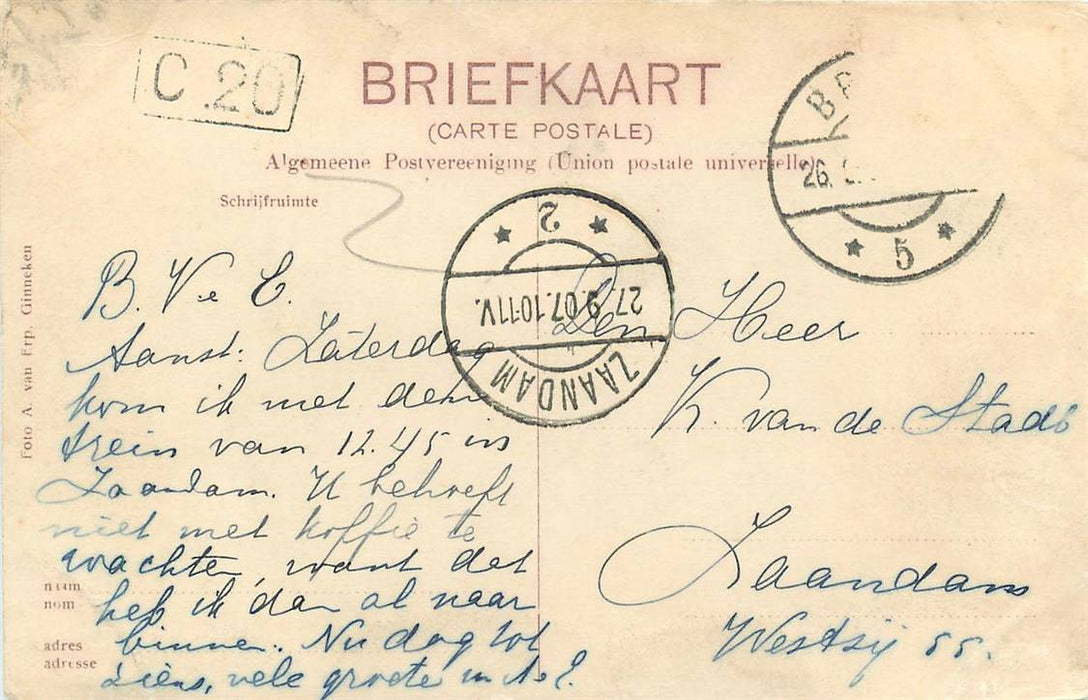 C.20
BRIEFKAART
(CARTE POSTALE)
Algemeene Postvereeniging (Union postale universelle)
Schrijfruimte
26
5
2
27 9.07.10-11V.
ZAANDAM
Foto A. van Erp. Ginneken
B. V. e E.
Aanst: Zaterdag
kom ik met den
trein van 12.45 in
Zaandam. U behoeft
niet met koffie te
wachten, want dat
heb ik dan al naar
binnen. Nu dag tot
ziens, vele groete
Den Heer
K. van de Stadt
Zaandam
Westzij 55.
naam
nom
adres
adresse